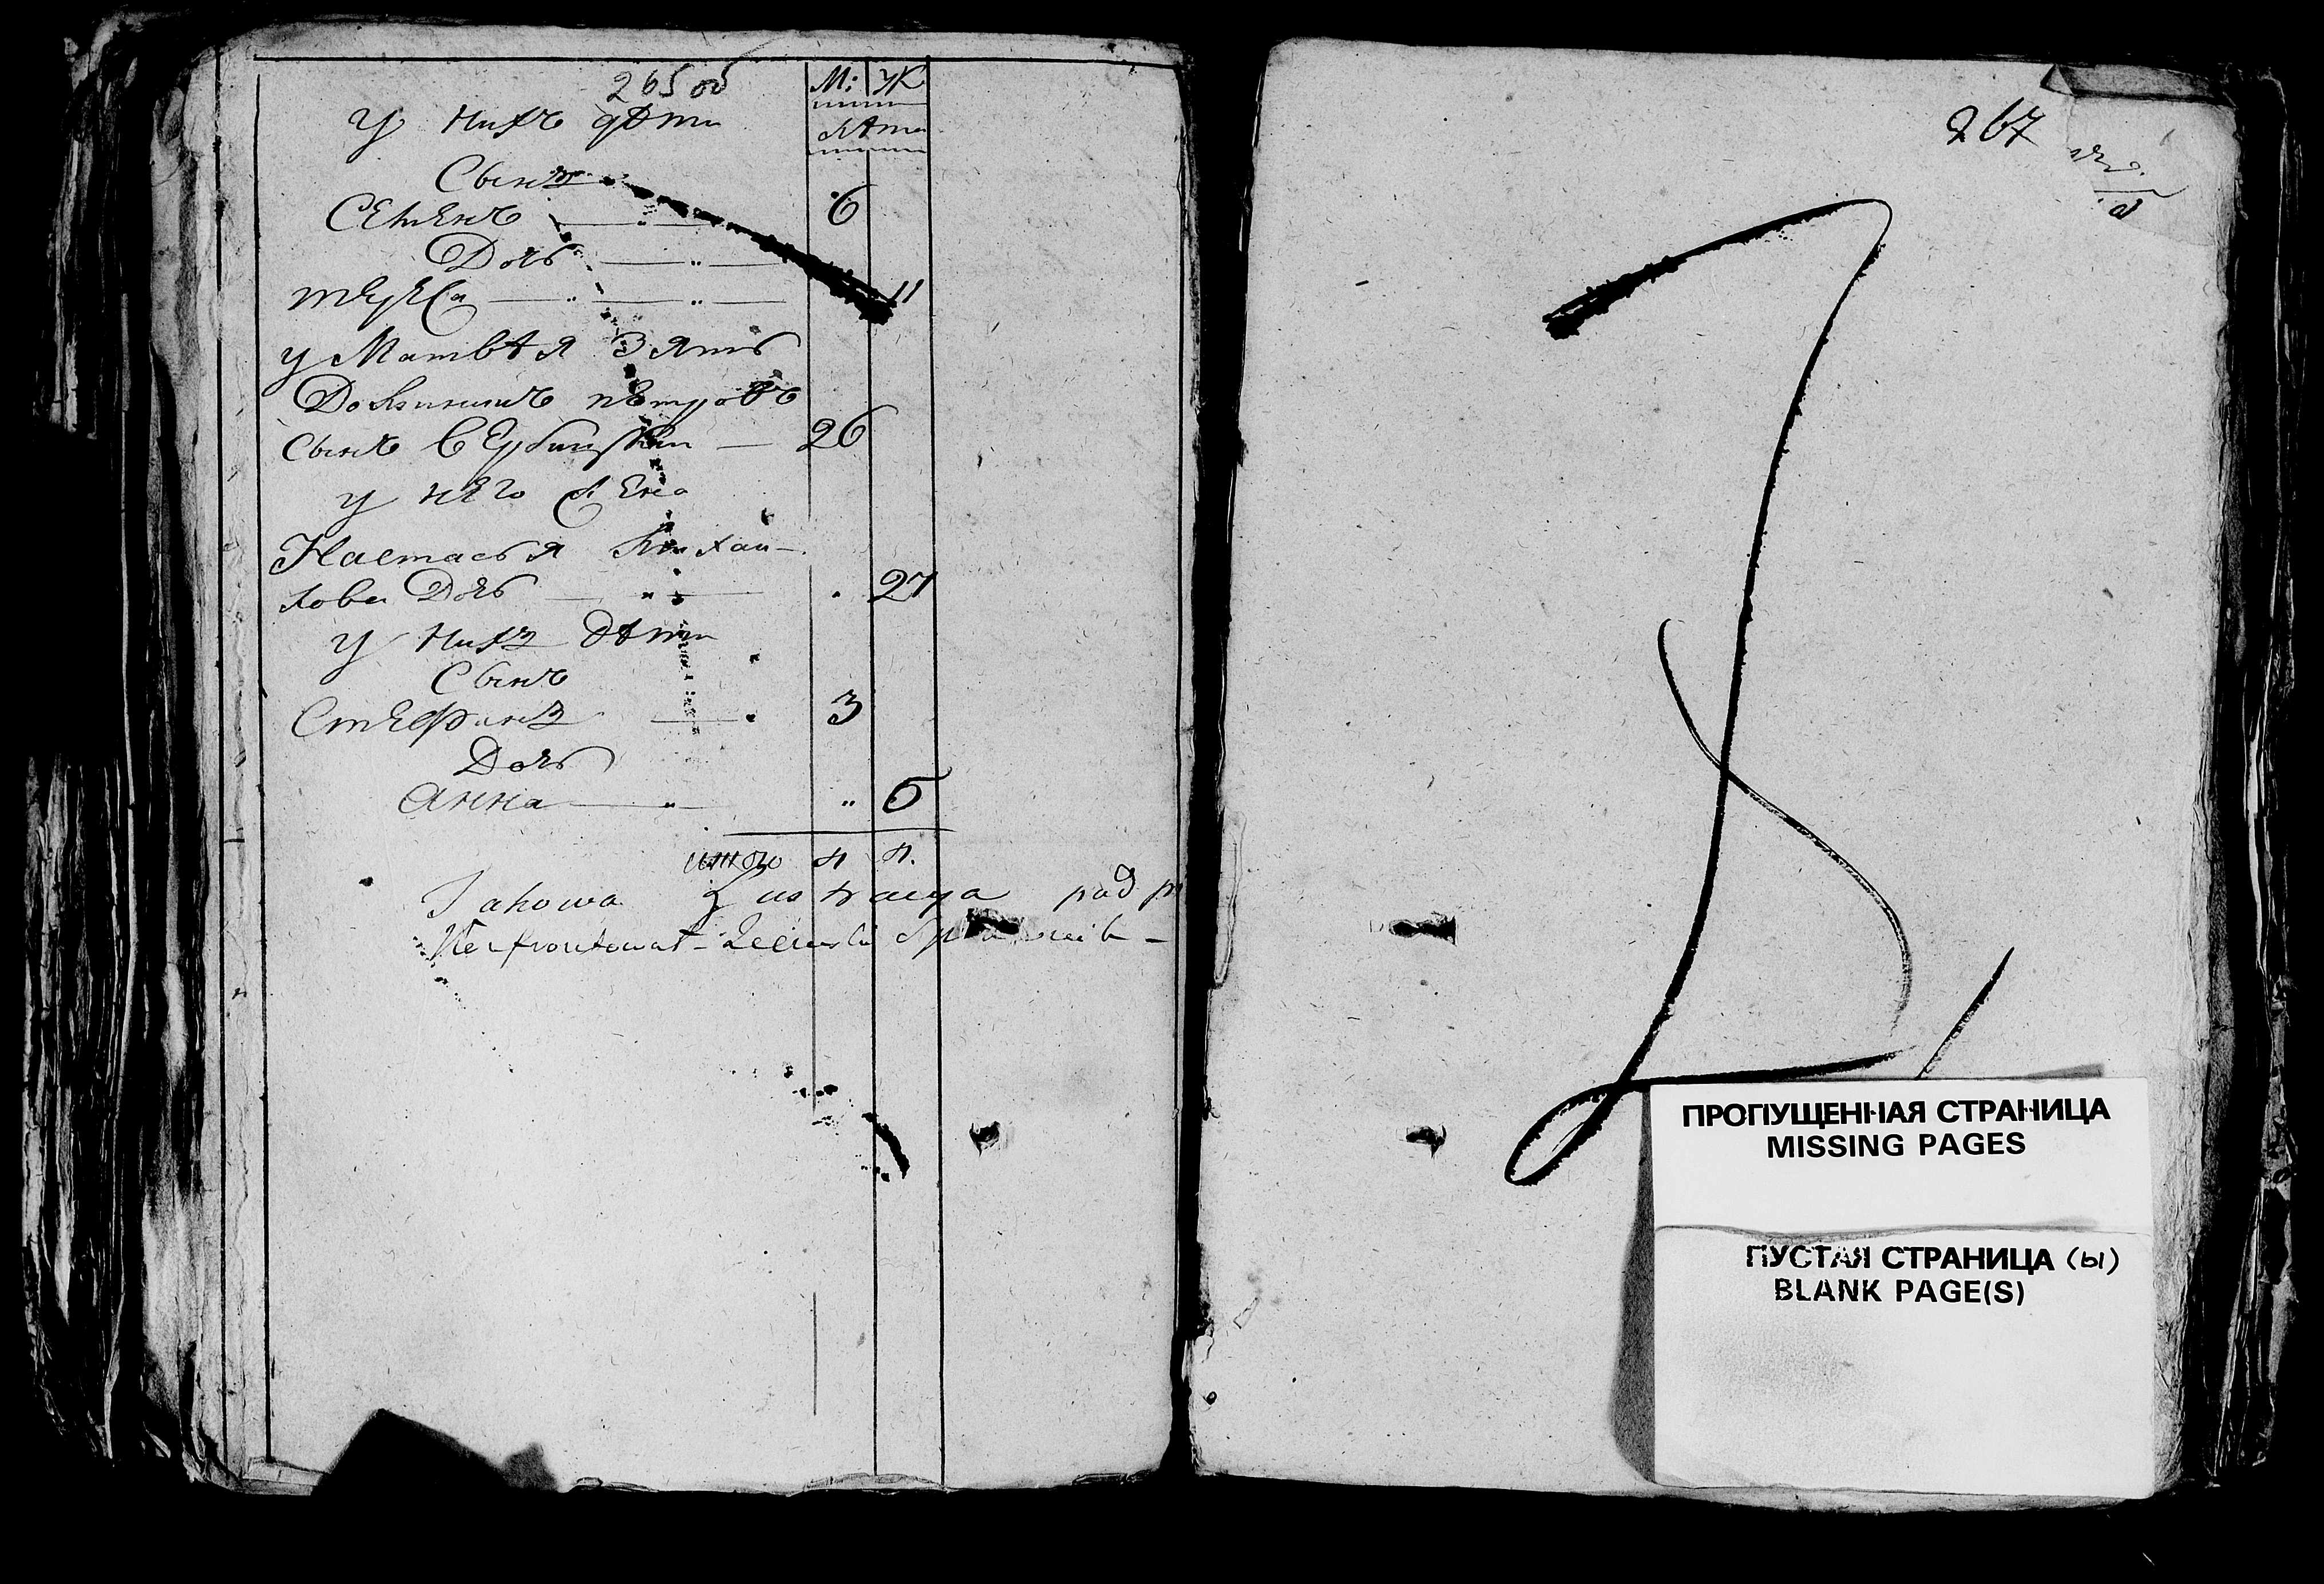 265 об
М: Ж
У нихъ дѣти лѣта
Сынъ
Семенъ 6
Дочь
тереса 11
у Матвѣя Зять
Доминикъ петровъ
сынъ вербицкии 26
у него жена
Настасья михаи-
лова Дочь 27
у нихъ дѣти
Сынъ
Стефанъ 3
Дочь
Анна 5
итого 4 4.
Jakowa
267
ПРОПУЩЕННАЯ СТРАНИЦА
MISSING PAGES
ПУСТАЯ СТРАНИЦА (Ы)
BLANK PAGE(S)